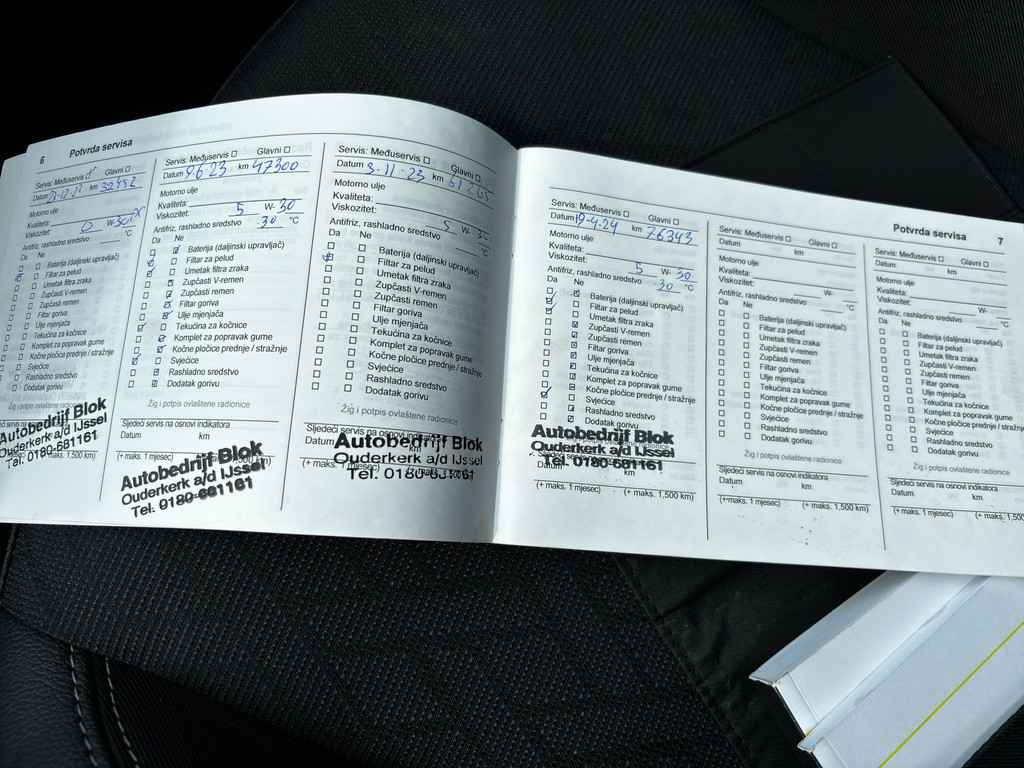 6 Potvrda servisa
Servis: Međuservis Glavni
Datum km 32452
Motorno ulje
Kvaliteta:
Viskozitet: 0 W-30
Antifriz, rashladno sredstvo °C
Da Ne
Baterija (daljinski upravljač)
Filtar za pelud
Umetak filtra zraka
Zupčasti V-remen
Zupčasti remen
Filtar goriva
Ulje mjenjača
Tekućina za kočnice
Komplet za popravak gume
Kočne pločice prednje / stražnje
Svjećice
Rashladno sredstvo
Dodatak gorivu
Žig i potpis ovlaštene radionice
Autobedrijf Blok
Ouderkerk a/d IJssel
Tel. 0180-681161
Servis: Međuservis Glavni
Datum 9.6.23 km 47300
Motorno ulje
Kvaliteta:
Viskozitet: 5 W-30
Antifriz, rashladno sredstvo -30 °C
Da Ne
Baterija (daljinski upravljač)
Filtar za pelud
Umetak filtra zraka
Zupčasti V-remen
Zupčasti remen
Filtar goriva
Ulje mjenjača
Tekućina za kočnice
Komplet za popravak gume
Kočne pločice prednje / stražnje
Svjećice
Rashladno sredstvo
Dodatak gorivu
Žig i potpis ovlaštene radionice
Sljedeći servis na osnovi indikatora
Datum km
(+ maks. 1 mjesec) (+ maks. 1,500 km)
Autobedrijf Blok
Ouderkerk a/d IJssel
Tel. 0180-681161
Servis: Međuservis Glavni
Datum 3-11-23 km
Motorno ulje
Kvaliteta:
Viskozitet: 5 W-30
Antifriz, rashladno sredstvo °C
Da Ne
Baterija (daljinski upravljač)
Filtar za pelud
Umetak filtra zraka
Zupčasti V-remen
Zupčasti remen
Filtar goriva
Ulje mjenjača
Tekućina za kočnice
Komplet za popravak gume
Kočne pločice prednje / stražnje
Svjećice
Rashladno sredstvo
Dodatak gorivu
Žig i potpis ovlaštene radionice
Sljedeći servis na osnovi indikatora
Datum km
Autobedrijf Blok
Ouderkerk a/d IJssel
Tel. 0180-681161
Potvrda servisa 7
Servis: Međuservis Glavni
Datum 19-4-24 km 76343
Motorno ulje
Kvaliteta:
Viskozitet: 5 W-30
Antifriz, rashladno sredstvo -30 °C
Da Ne
Baterija (daljinski upravljač)
Filtar za pelud
Umetak filtra zraka
Zupčasti V-remen
Zupčasti remen
Filtar goriva
Ulje mjenjača
Tekućina za kočnice
Komplet za popravak gume
Kočne pločice prednje / stražnje
Svjećice
Rashladno sredstvo
Dodatak gorivu
Autobedrijf Blok
Ouderkerk a/d IJssel
Tel. 0180-681161
Datum km
(+ maks. 1 mjesec) (+ maks. 1,500 km)
Servis: Međuservis Glavni
Datum km
Motorno ulje
Kvaliteta:
Viskozitet: W-
Antifriz, rashladno sredstvo °C
Da Ne
Baterija (daljinski upravljač)
Filtar za pelud
Umetak filtra zraka
Zupčasti V-remen
Zupčasti remen
Filtar goriva
Ulje mjenjača
Tekućina za kočnice
Komplet za popravak gume
Kočne pločice prednje / stražnje
Svjećice
Rashladno sredstvo
Dodatak gorivu
Žig i potpis ovlaštene radionice
Sljedeći servis na osnovi indikatora
Datum km
(+ maks. 1 mjesec) (+ maks. 1,500 km)
Servis: Međuservis Glavni
Datum km
Motorno ulje
Kvaliteta:
Viskozitet:
Antifriz, rashladno sredstvo
Da Ne
Baterija (daljinski upravljač)
Filtar za pelud
Umetak filtra zraka
Zupčasti V-remen
Zupčasti remen
Filtar goriva
Ulje mjenjača
Tekućina za kočnice
Komplet za popravak gume
Kočne pločice prednje / stražnje
Svjećice
Rashladno sredstvo
Dodatak gorivu
Žig i potpis ovlaštene radionice
Sljedeći servis na osnovi indikatora
Datum km
(+ maks. 1 mjesec) (+ maks. 1,500